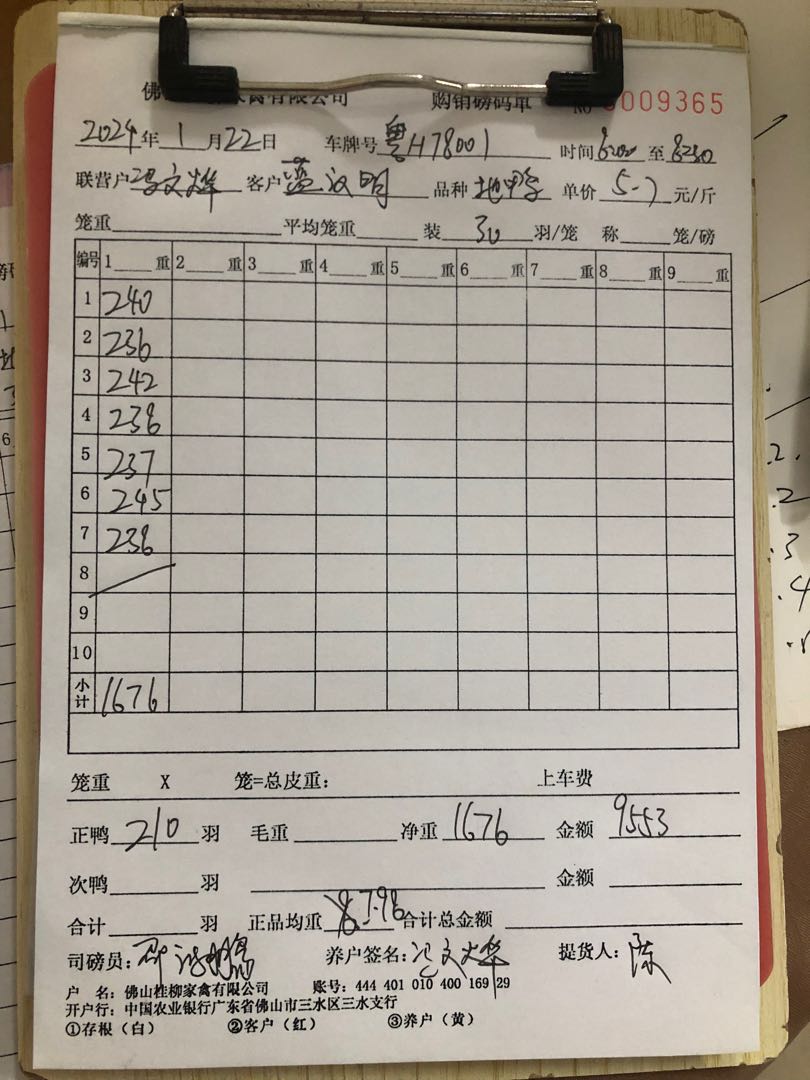 佛 家禽有限公司 购销磅码单 No 0009365
2024年1月22日 车牌号粤H78001 时间8:00至8:30
联营户冯文烨 客户蓝汉明 品种 单价5.7元/斤
笼重 平均笼重 装30羽/笼 称 笼/磅
编号 1 重 2 重 3 重 4 重 5 重 6 重 7 重 8 重 9 重
1 240
2 236
3 242
4 238
5 237
6 245
7 238
8
9
10
小计 1676
笼重 X 笼=总皮重: 上车费
正鸭210羽 毛重 净重1676 金额9553
次鸭 羽 金额
合计 羽 正品均重7.98 合计总金额
司磅员: 养户签名:冯文烨 提货人:陈
户 名: 佛山桂柳家禽有限公司 账号: 444 401 010 400 169 29
开户行: 中国农业银行广东省佛山市三水区三水支行
①存根(白) ②客户(红) ③养户(黄)